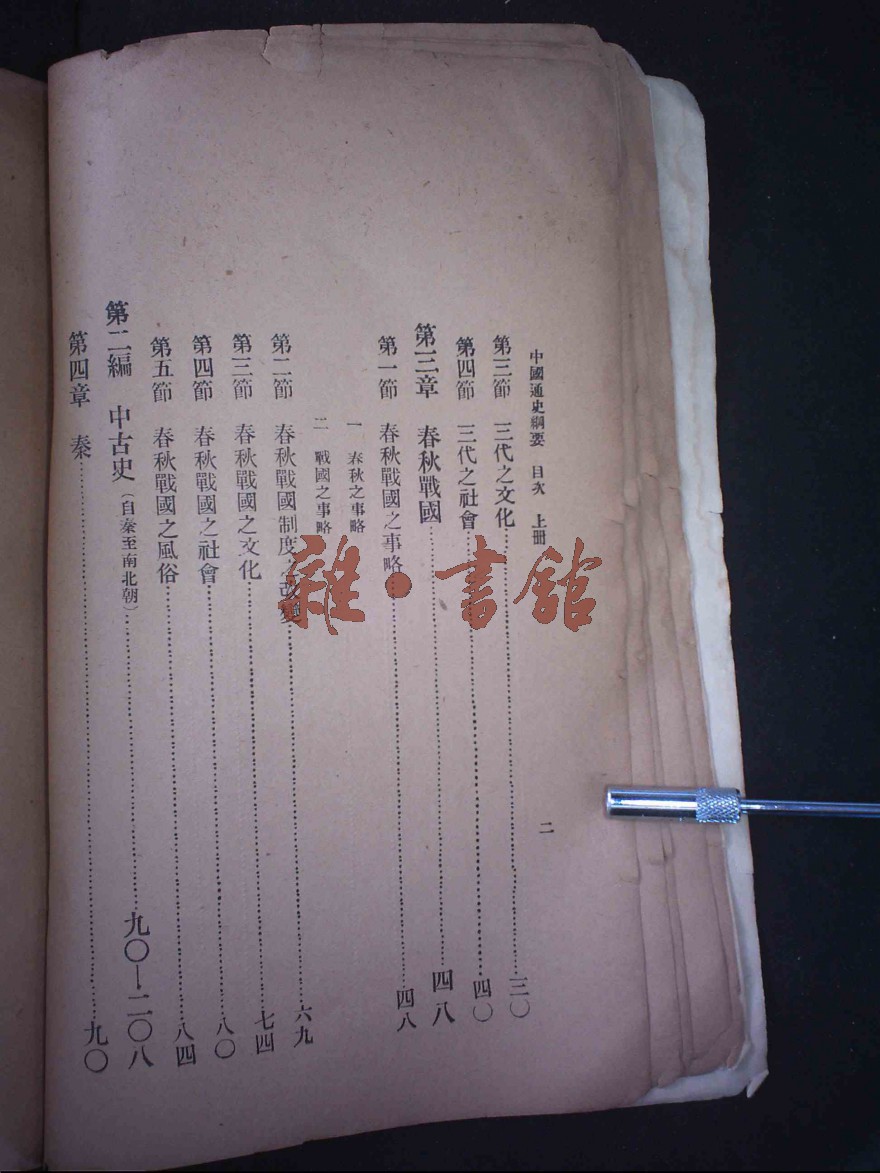 中國通史綱要 目次 上冊
二
第三節 三代之文化……三〇
第四節 三代之社會……四〇
第三章 春秋戰國……四八
第一節 春秋戰國之事略……四八
一 春秋之事略
二 戰國之事略
第二節 春秋戰國制度之改變……六九
第三節 春秋戰國之文化……七四
第四節 春秋戰國之社會……八〇
第五節 春秋戰國之風俗……八四
第二編 中古史(自秦至南北朝)……九〇—二〇八
第四章 秦……九〇
雜·書館